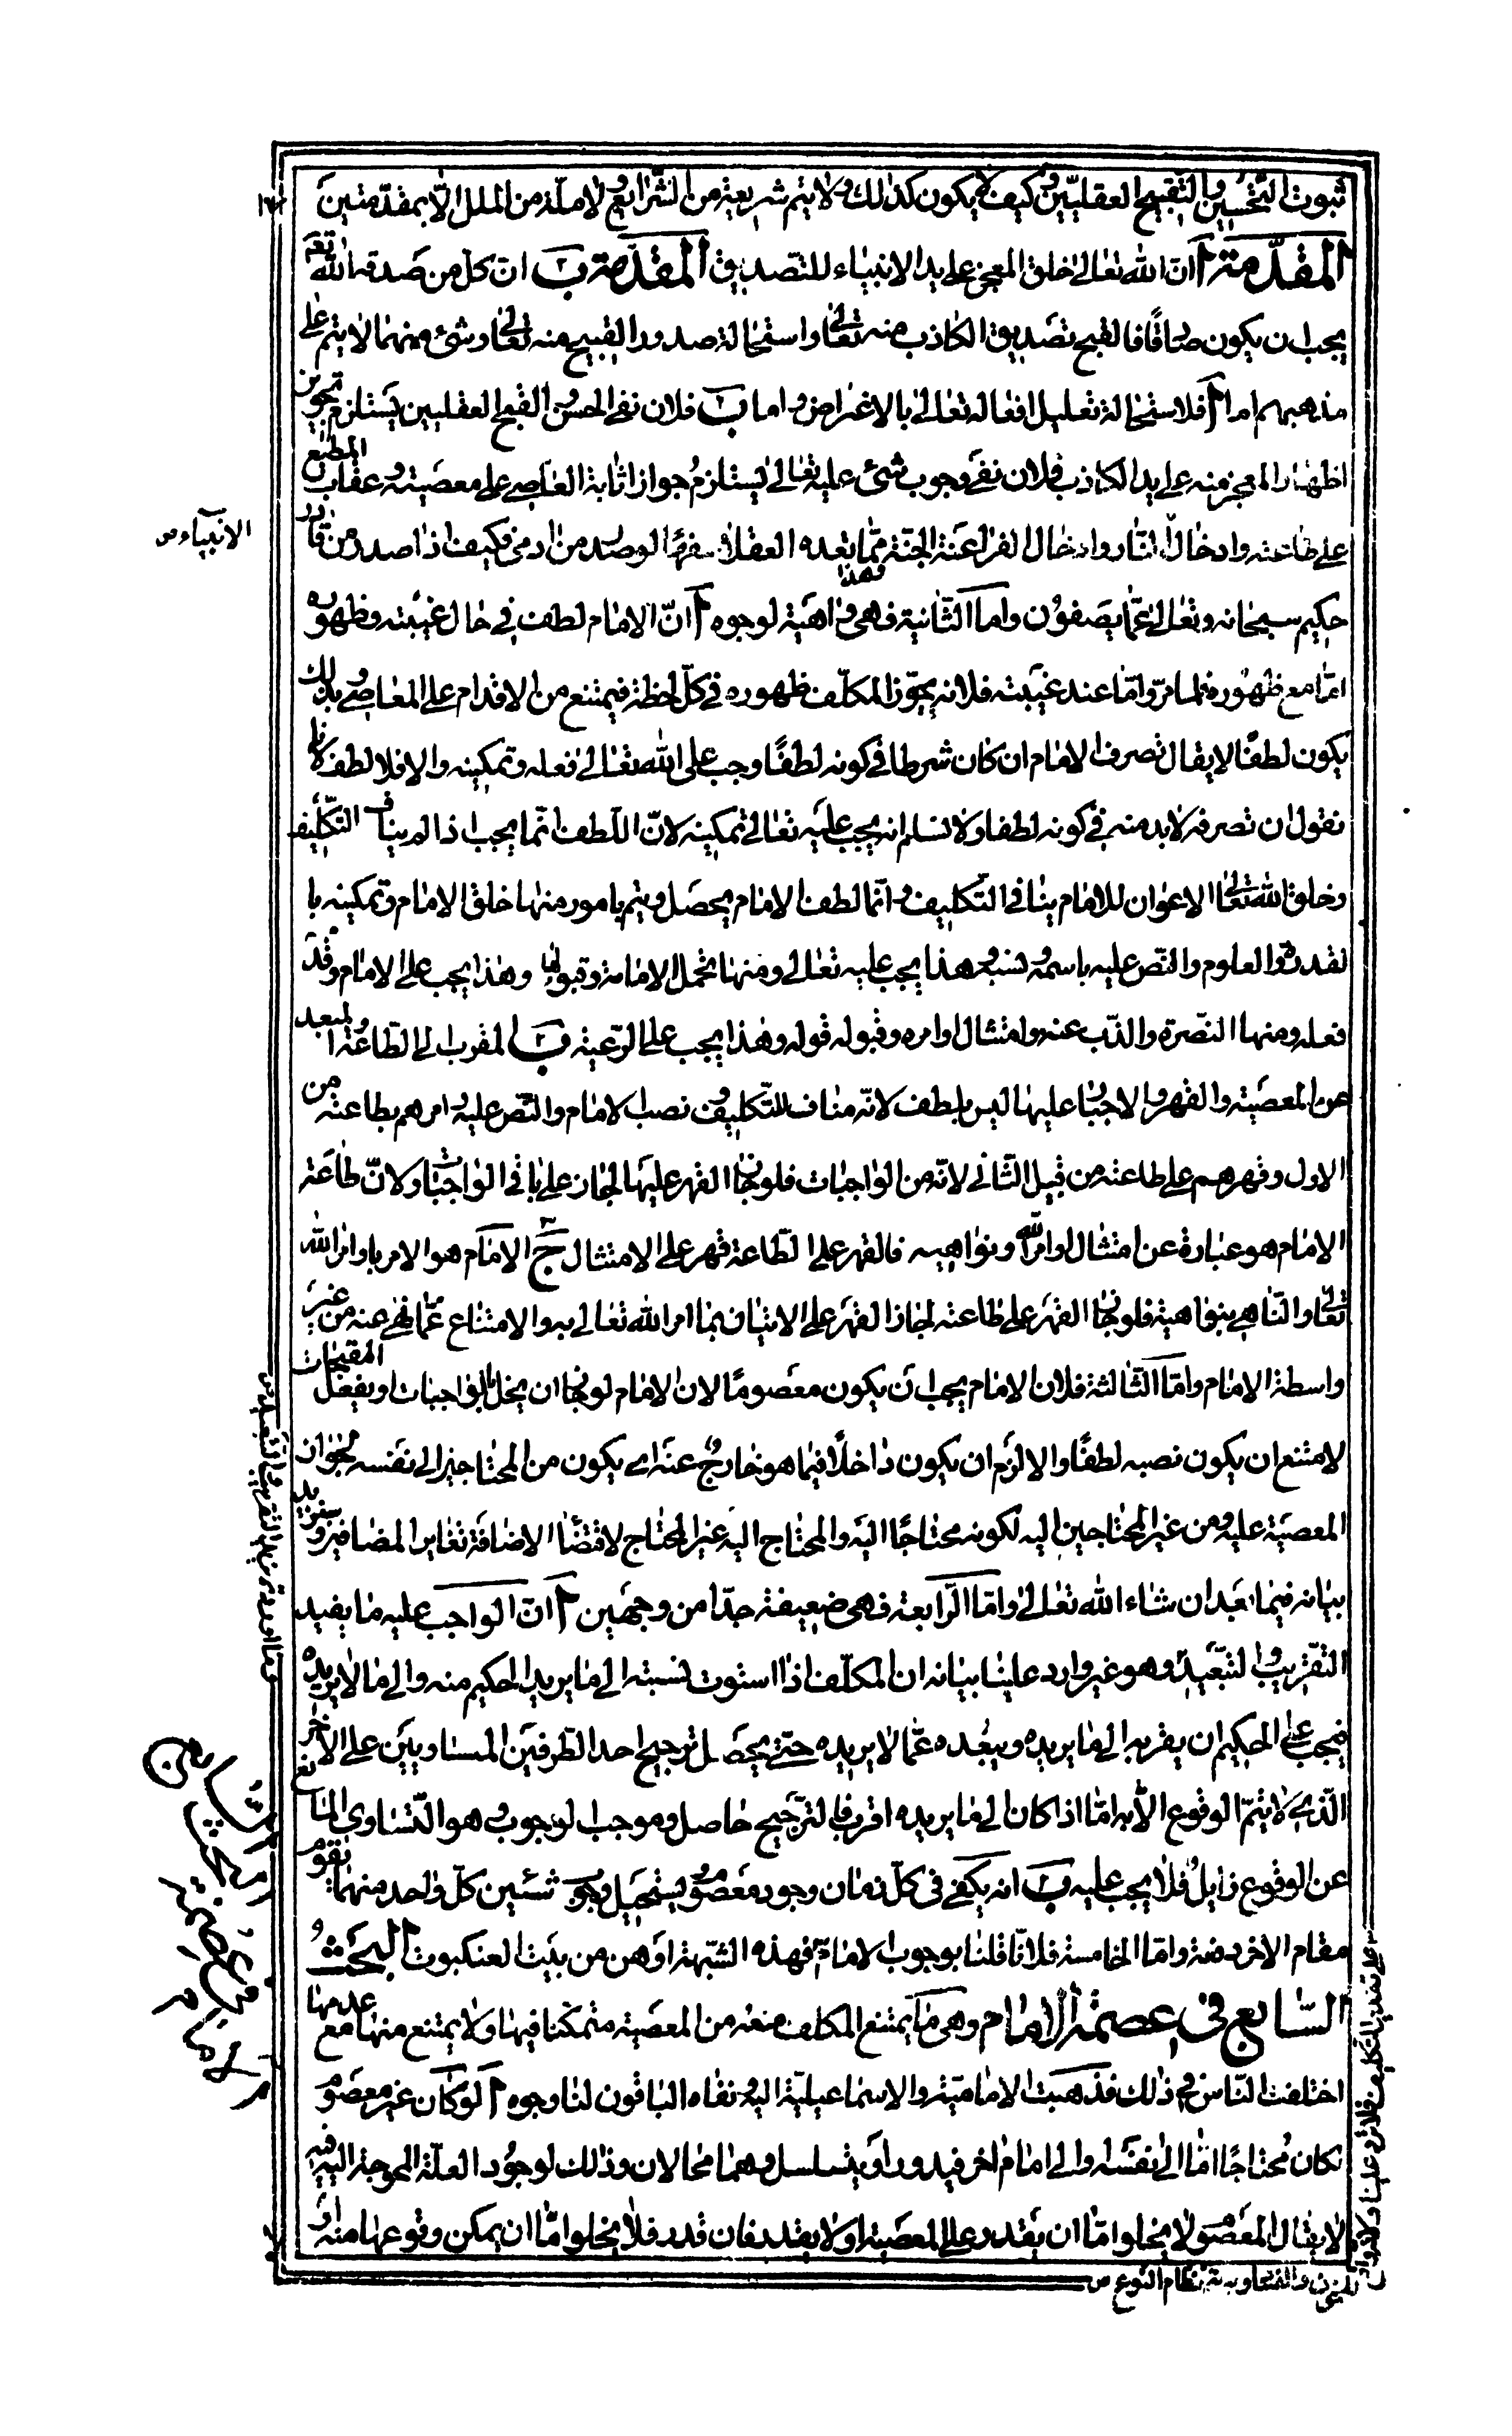 ثبوت التحسين والتقبيح العقليّين وكيف لا يكون كذلك ولا يتم شريعة من الشرايع ولا ملة من الملل الّا بمقدّمتين
المقدّمة آ انّ الله تعالى خلق المعجز على يد الانبياء للتصديق المقدّمة ب ان كل من صدقه الله تعم
يجب ان يكون صادقًا فالقبح تصديق الكاذب منه تعالى واستحالة صدور القبيح منه تعالى وشئ منهما لا يتم على
مذهبهم اما آ فلاستحالة تعليل افعاله تعالى بالاغراض واما ب فلان نفى الحسن والقبح العقليين يستلزم تجويز
اظهار المعجز منه على يد الكاذب فلان نفى وجوب شئ عليه تعالى يستلزم جواز اثابة العاصى على معصيته وعقاب المطيع
على طاعته وادخال النار وادخال الفراعنة الجنة ممّا تعده العقلاء سفهًا لو صدر من ادمى فكيف اذا صدر من قادر
الانبياء ص
حكيم سبحانه وتعالى عمّا يصفون وامّا الثانية فهى واهية لوجوه آ انّ الامام لطف في حال غيبته وظهوره
امّا مع ظهوره فلما مرّ وامّا عند غيبته فلانه يجوّز المكلّف ظهوره في كلّ لحظة فيمتنع من الاقدام على المعاصى وبذلك
يكون لطفًا لا يقال تصرف الامام ان كان شرطا في كونه لطفًا وجب على الله تعالى فعله وتمكينه والا فلا لطف لانا
نقول ان تصرفه لابد منه في كونه لطفا ولا نسلم انه يجب عليه تعالى تمكينه لانّ اللطف انّما يجب اذا لم يناف التكليف
وخلق الله تعالى الاعوان للامام ينافى التكليف وانّما لطف الامام يحصل ويتم بامور منها خلق الامام وتمكينه با
لقدرة والعلوم والنص عليه باسمه ونسبه وهذا يجب عليه تعالى ومنها تحمل الامامة وقبولها وهذا يجب على الامام وقد
فعله ومنها النصرة والذب عنه وامتثال اوامره وقبوله قوله وهذا يجب على الرعية ب المقرب الى الطاعة والمبعد
عن المعصية والقهر والاجبار عليها ليس بلطف لانّه مناف للتكليف ونصب الامام والنص عليه وامرهم بطاعته من
الاول وقهرهم على طاعته من قبيل الثانى لانّه من الواجبات فلو جاز القهر عليها لجاز على باقى الواجبات ولانّ طاعة
الامام هو عبارة عن امتثال اوامر الله ونواهيه فالقهر على الطاعة قهر على الامتثال ج الامام هو الامر باوامر الله
تعالى والناهى بنواهيه فلو جاز القهر على طاعته لجاز القهر على الاتيان بما امر الله تعالى به والامتناع عمّا نهى عنه من غير
واسطة الامام وامّا الثالثة فلان الامام يجب ان يكون معصومًا لان الامام لو جاز ان يخل بالواجبات ويفعل المقبحات
لامتنع ان يكون نصبه لطفًا والا لزم ان يكون داخلًا فيما هو خارج عنه اى يكون من المحتاجين الى نفسه لجواز
المعصية عليه ومن غير المحتاجين اليه لكونه محتاجًا اليه والمحتاج اليه غير المحتاج لاقتضاء الاضافة تغاير المضافين وسنزيد
بيانه فيما بعد ان شاء الله تعالى وامّا الرابعة فهى ضعيفة جدّا من وجهين آ انّ الواجب عليه ما يفيد
التقريب والتبعيد وهو غير وارد علينا بيانه ان المكلّف اذا استوت نسبته الى ما يريد الحكيم منه والى ما لا يريده
فيجب على الحكيم ان يقربه الى ما يريده ويبعده عمّا لا يريده حتى يحصل ترجيح احد الطرفين المساويين على الاخر
الذى لا يتمّ الوقوع الّا به امّا اذا كان الى ما يريده اقرب فالترجيح حاصل وموجب الوجوب هو التساوى المانع
عن الوقوع زايل فلا يجب عليه ب انه يكفى فى كلّ زمان وجود معصوم ويستحيل وجود شيئين كلّ واحد منهما يقوم
مقام الاخر دفعة وامّا الخامسة فلانّا قلنا بوجوب الامامة فهذه الشبهة اوهن من بيت العنكبوت البحث
السّابع فى عصمة الامام وهى ما يمتنع المكلف منعه من المعصية متمكّنا فيها ولا يمتنع منها مع عدمها
اختلف الناس في ذلك فذهبت الامامية والاسماعيلية اليه ونفاه الباقون لنا وجوه آ لو كان غير معصوم
لكان محتاجًا امّا الى نفسه او الى امام اخر فيدور او يتسلسل وهما محالان وذلك لوجود العلّة المحوجة اليه فيه
لا يقال المعصوم لا يخلو امّا ان يقدر على المعصية او لا يقدر فان قدر فلا يخلو امّا ان يمكن وقوعها منه او